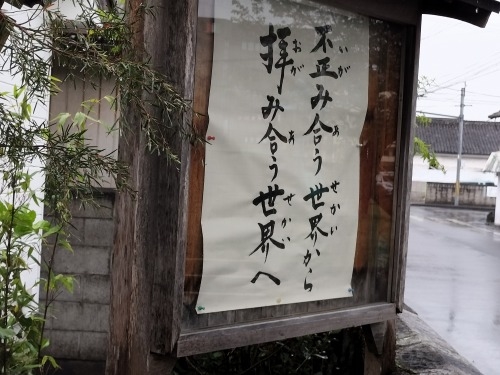 歪み合う世界から
いが あ せかい
拝み合う世界へ
おが あ せかい